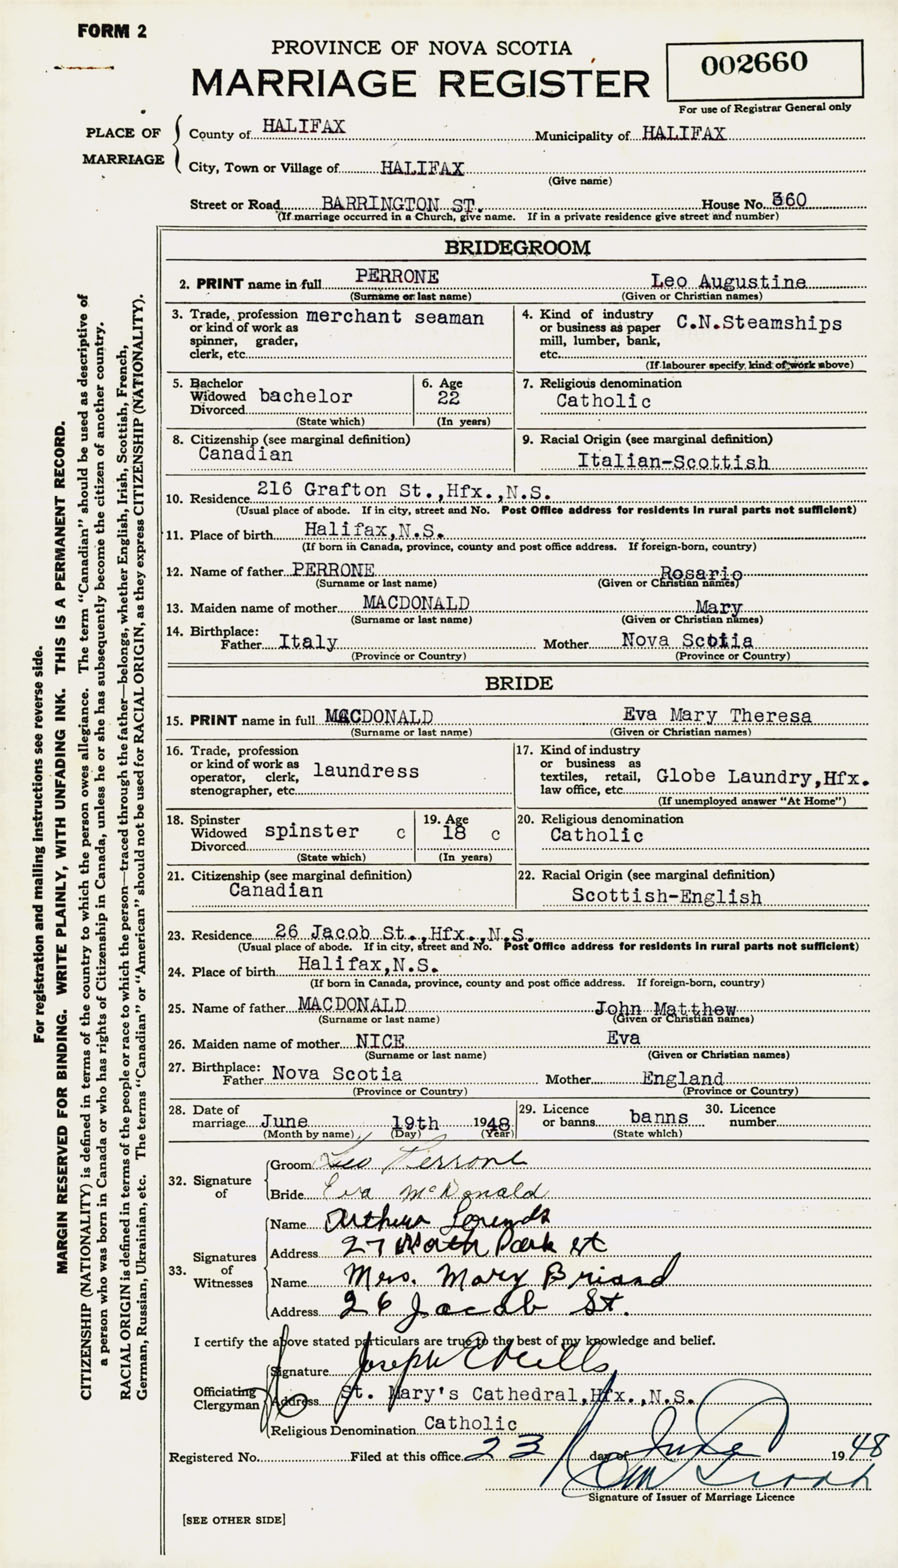 FORM 2
PROVINCE OF NOVA SCOTIA
MARRIAGE REGISTER
002660
For use of Registrar General only
PLACE OF MARRIAGE
County of HALIFAX Municipality of HALIFAX
City, Town or Village of HALIFAX
(Give name)
Street or Road BARRINGTON ST. House No. 360
(If marriage occurred in a Church, give name. If in a private residence give street and number)
BRIDEGROOM
2. PRINT name in full PERRONE Leo Augustine
(Surname or last name) (Given or Christian names)
3. Trade, profession or kind of work as spinner, grader, clerk, etc. merchant seaman
4. Kind of industry or business as paper mill, lumber, bank, etc. C.N.Steamships
(If labourer specify kind of work above)
5. Bachelor Widowed Divorced bachelor
(State which)
6. Age 22
(In years)
7. Religious denomination Catholic
8. Citizenship (see marginal definition) Canadian
9. Racial Origin (see marginal definition) Italian-Scottish
10. Residence 216 Grafton St.,Hfx.,N.S.
(Usual place of abode. If in city, street and No. Post Office address for residents in rural parts not sufficient)
11. Place of birth Halifax,N.S.
(If born in Canada, province, county and post office address. If foreign-born, country)
12. Name of father PERRONE Rosario
(Surname or last name) (Given or Christian names)
13. Maiden name of mother MACDONALD Mary
(Surname or last name) (Given or Christian names)
14. Birthplace: Father Italy Mother Nova Scotia
(Province or Country) (Province or Country)
BRIDE
15. PRINT name in full MACDONALD Eva Mary Theresa
(Surname or last name) (Given or Christian names)
16. Trade, profession or kind of work as operator, clerk, stenographer, etc. laundress
17. Kind of industry or business as textiles, retail, law office, etc. Globe Laundry,Hfx.
(If unemployed answer "At Home")
18. Spinster Widowed Divorced spinster c
(State which)
19. Age 18 c
(In years)
20. Religious denomination Catholic
21. Citizenship (see marginal definition) Canadian
22. Racial Origin (see marginal definition) Scottish-English
23. Residence 26 Jacob St.,Hfx.,N.S.
(Usual place of abode. If in city, street and No. Post Office address for residents in rural parts not sufficient)
24. Place of birth Halifax,N.S.
(If born in Canada, province, county and post office address. If foreign-born, country)
25. Name of father MACDONALD John Matthew
(Surname or last name) (Given or Christian names)
26. Maiden name of mother NICE Eva
(Surname or last name) (Given or Christian names)
27. Birthplace: Father Nova Scotia Mother England
(Province or Country) (Province or Country)
28. Date of marriage June 19th 1948
(Month by name) (Day) (Year)
29. Licence or banns banns
(State which)
30. Licence number
32. Signature of
Groom Leo Perrone
Bride Eva McDonald
33. Signatures of Witnesses
Name Arthur
Address 27 North Park st
Name Mrs. Mary Briand
Address 26 Jacob St.
I certify the above stated particulars are true to the best of my knowledge and belief.
Officiating Clergyman
Signature Joseph E Mills
Address St. Mary's Cathedral,Hfx.,N.S.
Religious Denomination Catholic
Registered No. Filed at this office 23 day of June 1948
Signature of Issuer of Marriage Licence
[SEE OTHER SIDE]
For registration and mailing instructions see reverse side.
MARGIN RESERVED FOR BINDING. WRITE PLAINLY, WITH UNFADING INK. THIS IS A PERMANENT RECORD.
CITIZENSHIP (NATIONALITY) is defined in terms of the country to which the person owes allegiance. The term "Canadian" should be used as descriptive of
a person who was born in Canada or who has rights of Citizenship in Canada, unless he or she has subsequently become the citizen of another country.
RACIAL ORIGIN is defined in terms of the people or race to which the person—traced through the father—belongs, whether English, Irish, Scottish, French,
German, Russian, Ukrainian, etc. The terms "Canadian" or "American" should not be used for RACIAL ORIGIN, as they express CITIZENSHIP (NATIONALITY).